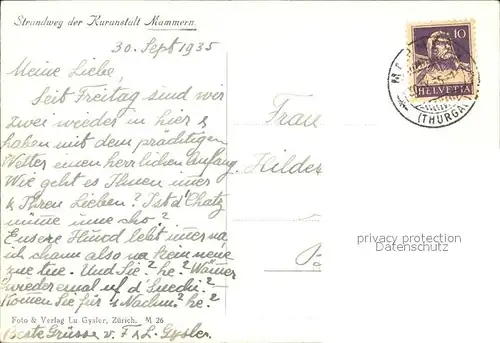 Strandweg der Kuranstalt Mammern.
30. Sept 1935
Meine Liebe,
Seit Freitag sind wir
zwei wieder in hier &
haben mit dem prächtigen
Wetter einen herrlichen Anfang.
Wie geht es Ihnen imer
& Ihren Lieben? Ist d'Chatz
nüme ume cho?
Eusere Hund lebt imer na,
ich chann also na kein neue
zue tue. Und Sie? he? Wämer
wieder emal uf d'
Komen Sie für s Nachm? he?
Foto & Verlag Lu Gysler, Zürich. M 26
Beste Grüsse v. F & L. Gysler.
10
HELVETIA
(THURGAU)
Frau
Hilde
privacy protection
Datenschutz